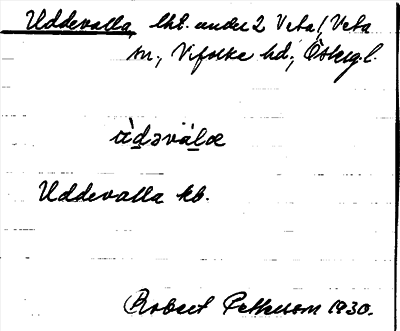 Uddevalla, lht. under 2 Veta, Veta
sn., Vifolka hd., Östergl.
ùdəvàlæ
Uddevalla kb.
Robert Pettersson 1930.